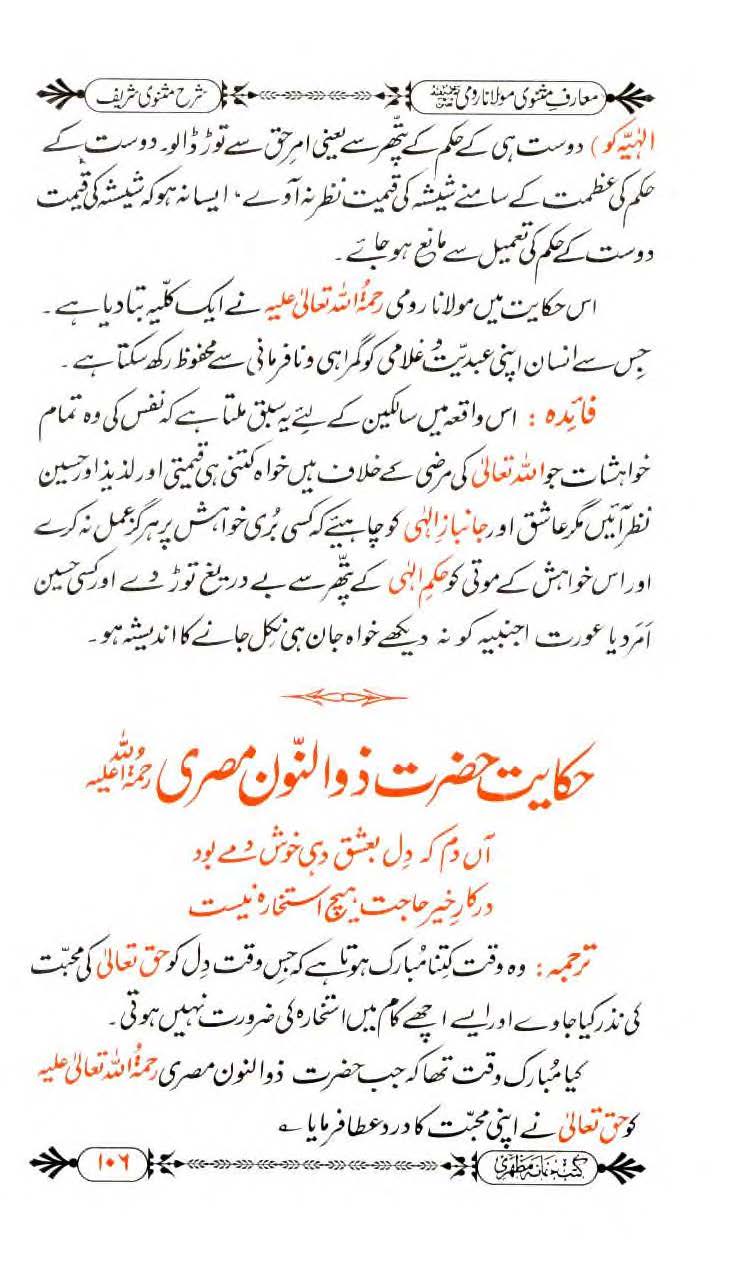 معارفِ مثنوی مولانا رومیؒ شرح مثنوی شریف
الٰہیّہ کو) دوست ہی کے حکم کے پتّھر سے یعنی امرِ حق سے توڑ ڈالو۔ دوست کے
حکم کی عظمت کے سامنے شیشہ کی قیمت نظر نہ آوے، ایسا نہ ہو کہ شیشہ کی قیمت
دوست کے حکم کی تعمیل سے مانع ہو جائے۔
اس حکایت میں مولانا رومی رحمۃُ اللہ تعالیٰ علیہ نے ایک کلّیہ بتا دیا ہے۔
جِس سے انسان اپنی عبدیّت و غلامی کو گمراہی و نافرمانی سے محفوظ رکھ سکتا ہے۔
فائدہ : اس واقعہ میں سالکین کے لئے یہ سبق ملتا ہے کہ نفس کی وہ تمام
خواہشات جو اللہ تعالیٰ کی مرضی کے خلاف ہیں خواہ کتنی ہی قیمتی اور لذیذ اور حسین
نظر آئیں مگر عاشق اور جانبازِ الٰہی کو چاہیئے کہ کسی بُری خواہش پر ہرگز عمل نہ کرے
اور اس خواہش کے موتی کو حکمِ الٰہی کے پتّھر سے بے دریغ توڑ دے اور کسی حسین
اَمرَد یا عورت اجنبیہ کو نہ دیکھے خواہ جان ہی نِکل جانے کا اندیشہ ہو۔
حکایت حضرت ذوالنّون مصری رحمۃُ اللہ علیہ
آں دَم کہ دِل بعشق دہی خوش دمے بود
درکارِ خیر حاجت ہیچ استخارہ نیست
ترجمہ : وہ وقت کِتنا مُبارک ہوتا ہے کہ جِس وقت دِل کو حق تعالیٰ کی محبّت
کی نذر کیا جاوے اور ایسے اچھے کام میں استخارہ کی ضرورت نہیں ہوتی۔
کیا مُبارک وقت تھا کہ جب حضرت ذوالنون مصری رحمۃُ اللہ تعالیٰ علیہ
کو حق تعالیٰ نے اپنی محبّت کا درد عطا فرمایا ؎
کتب خانہ مظہری ۱۰۶